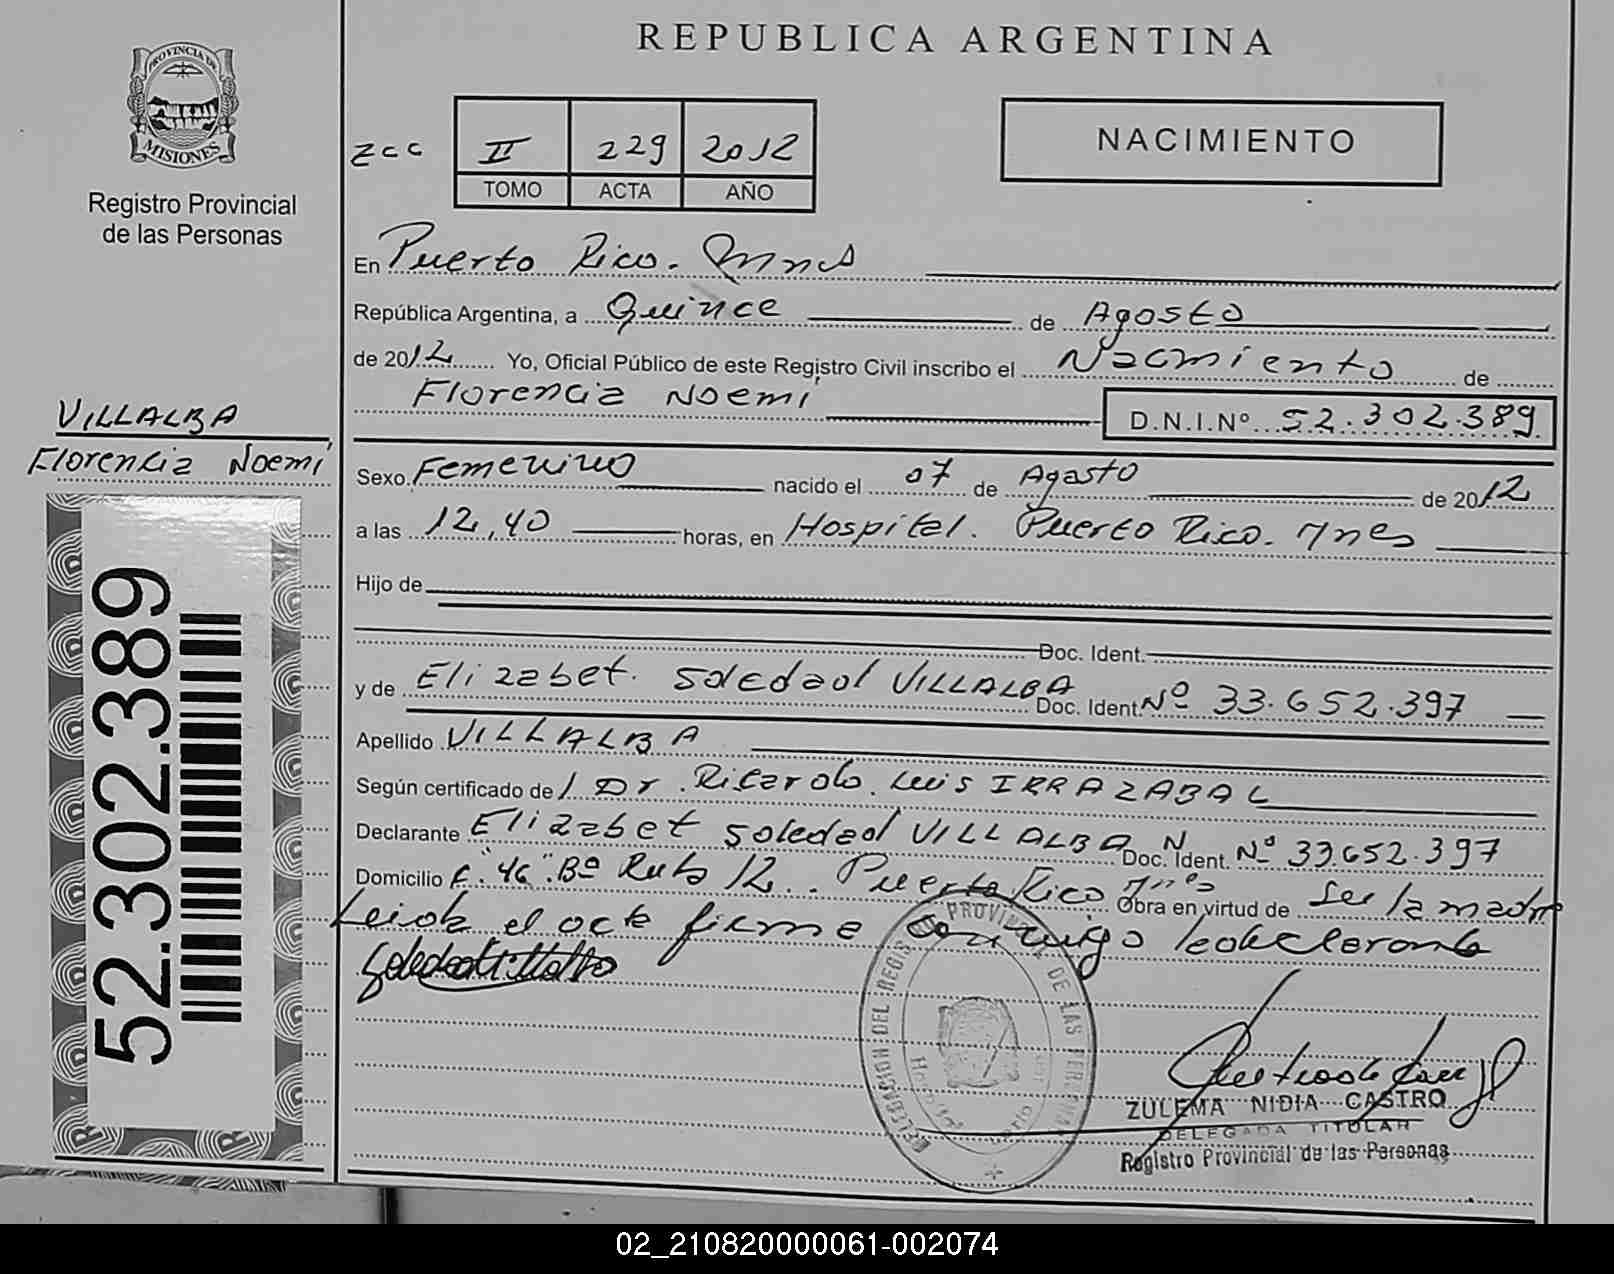 REPUBLICA ARGENTINA
PROVINCIA DE
MISIONES
Registro Provincial
de las Personas
zcc II 229 2012
TOMO ACTA AÑO
NACIMIENTO
En Puerto Rico. Mnes
República Argentina, a Quince de Agosto
de 2012 Yo, Oficial Público de este Registro Civil inscribo el Nacmiento de
Florencia Noemi D.N.I.Nº 52.302.389
VILLALBA
Florencia Noemi
Sexo Femenino nacido el 07 de Agosto de 2012
a las 12,40 horas, en Hospital. Puerto Rico. Mnes
Hijo de
Doc. Ident.
y de Elizabet. Soledad VILLALBA Doc. Ident. Nº 33.652.397
Apellido VILLALBA
Según certificado de Dr. Ricardo. Luis IRRAZABAL
Declarante Elizabet Soledad VILLALBA Doc. Ident. Nº 33.652.397
Domicilio "46" Bº Ruta 12.. Puerto Rico Mnes Obra en virtud de Ser la madre
Leida el acta firma conmigo la declarante
52.302.389
DELEGACION DEL REGISTRO PROVINCIAL DE LAS PERSONAS
ZULEMA NIDIA CASTRO
DELEGADA TITULAR
Registro Provincial de las Personas
02_210820000061-002074